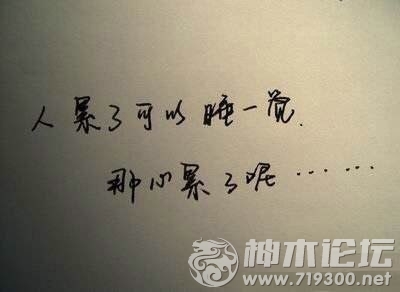 人累了可以睡一觉.
那心累了呢……
神木论坛
www.719300.net